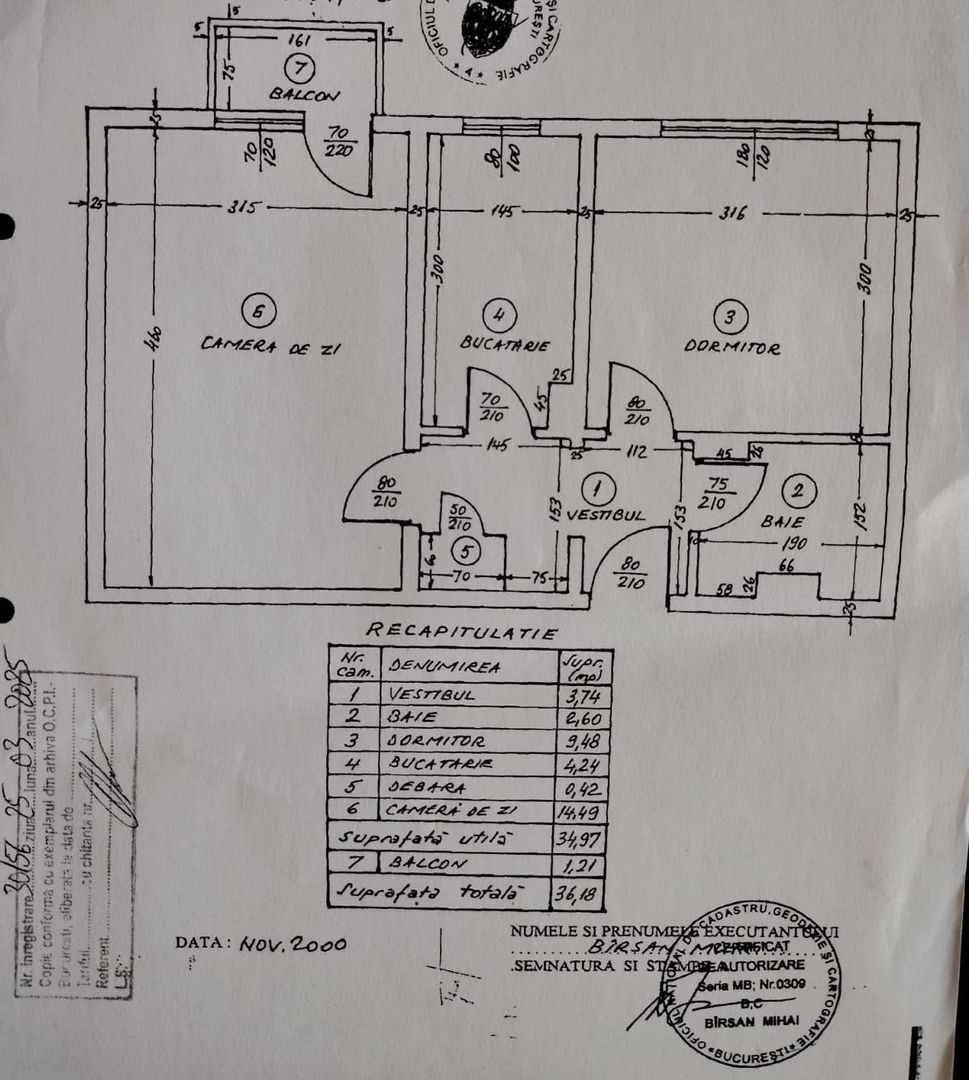 OFICIUL
ȘI CARTOGRAFIE
* 4 *
5
5
161
5
75
7
BALCON
70
120
70
220
80
100
180
120
25
25
25
315
25
145
25
316
25
460
300
300
6
CAMERA DE ZI
4
BUCATARIE
3
DORMITOR
25
45
70
210
80
210
145
25
112
45
26
80
210
50
210
153
1
VESTIBUL
153
75
210
2
BAIE
152
190
5
60
70
75
80
210
10
66
58
26
25
RECAPITULATIE
Nr. cam. DENUMIREA Supr. (mp)
1 VESTIBUL 3,74
2 BAIE 2,60
3 DORMITOR 9,48
4 BUCATARIE 4,24
5 DEBARA 0,42
6 CAMERA DE ZI 14,49
Suprafată utilă 34,97
7 BALCON 1,21
Suprafata totală 36,18
Nr. inregistrare 30156 ziua 25 luna 03 anul 2025
Copie conforma cu exemplarul din arhiva O.C.P.I.-
Bucuresti, eliberata la data de
Tariful cu chitanta nr.
Referent
L.S.
DATA: NOV. 2000
NUMELE SI PRENUMELE EXECUTANTULUI
BÎRSAN
SEMNATURA SI
OFICIUL NATIONAL DE CADASTRU, GEODEZIE ȘI CARTOGRAFIE
CERTIFICAT
DE AUTORIZARE
Seria MB; Nr.0309
B,C
BÎRSAN MIHAI
*BUCUREȘTI*